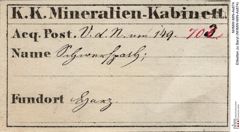 K.K. Mineralien-Kabinett.
Acq. Post. V. d. N. um 149. 703
Name Schwerspath;
Fundort Harz